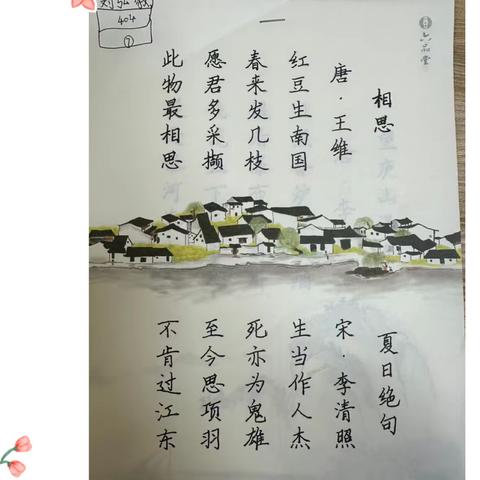 六品堂
404
7
相思
唐·王维
红豆生南国
春来发几枝
愿君多采撷
此物最相思
夏日绝句
宋·李清照
生当作人杰
死亦为鬼雄
至今思项羽
不肯过江东